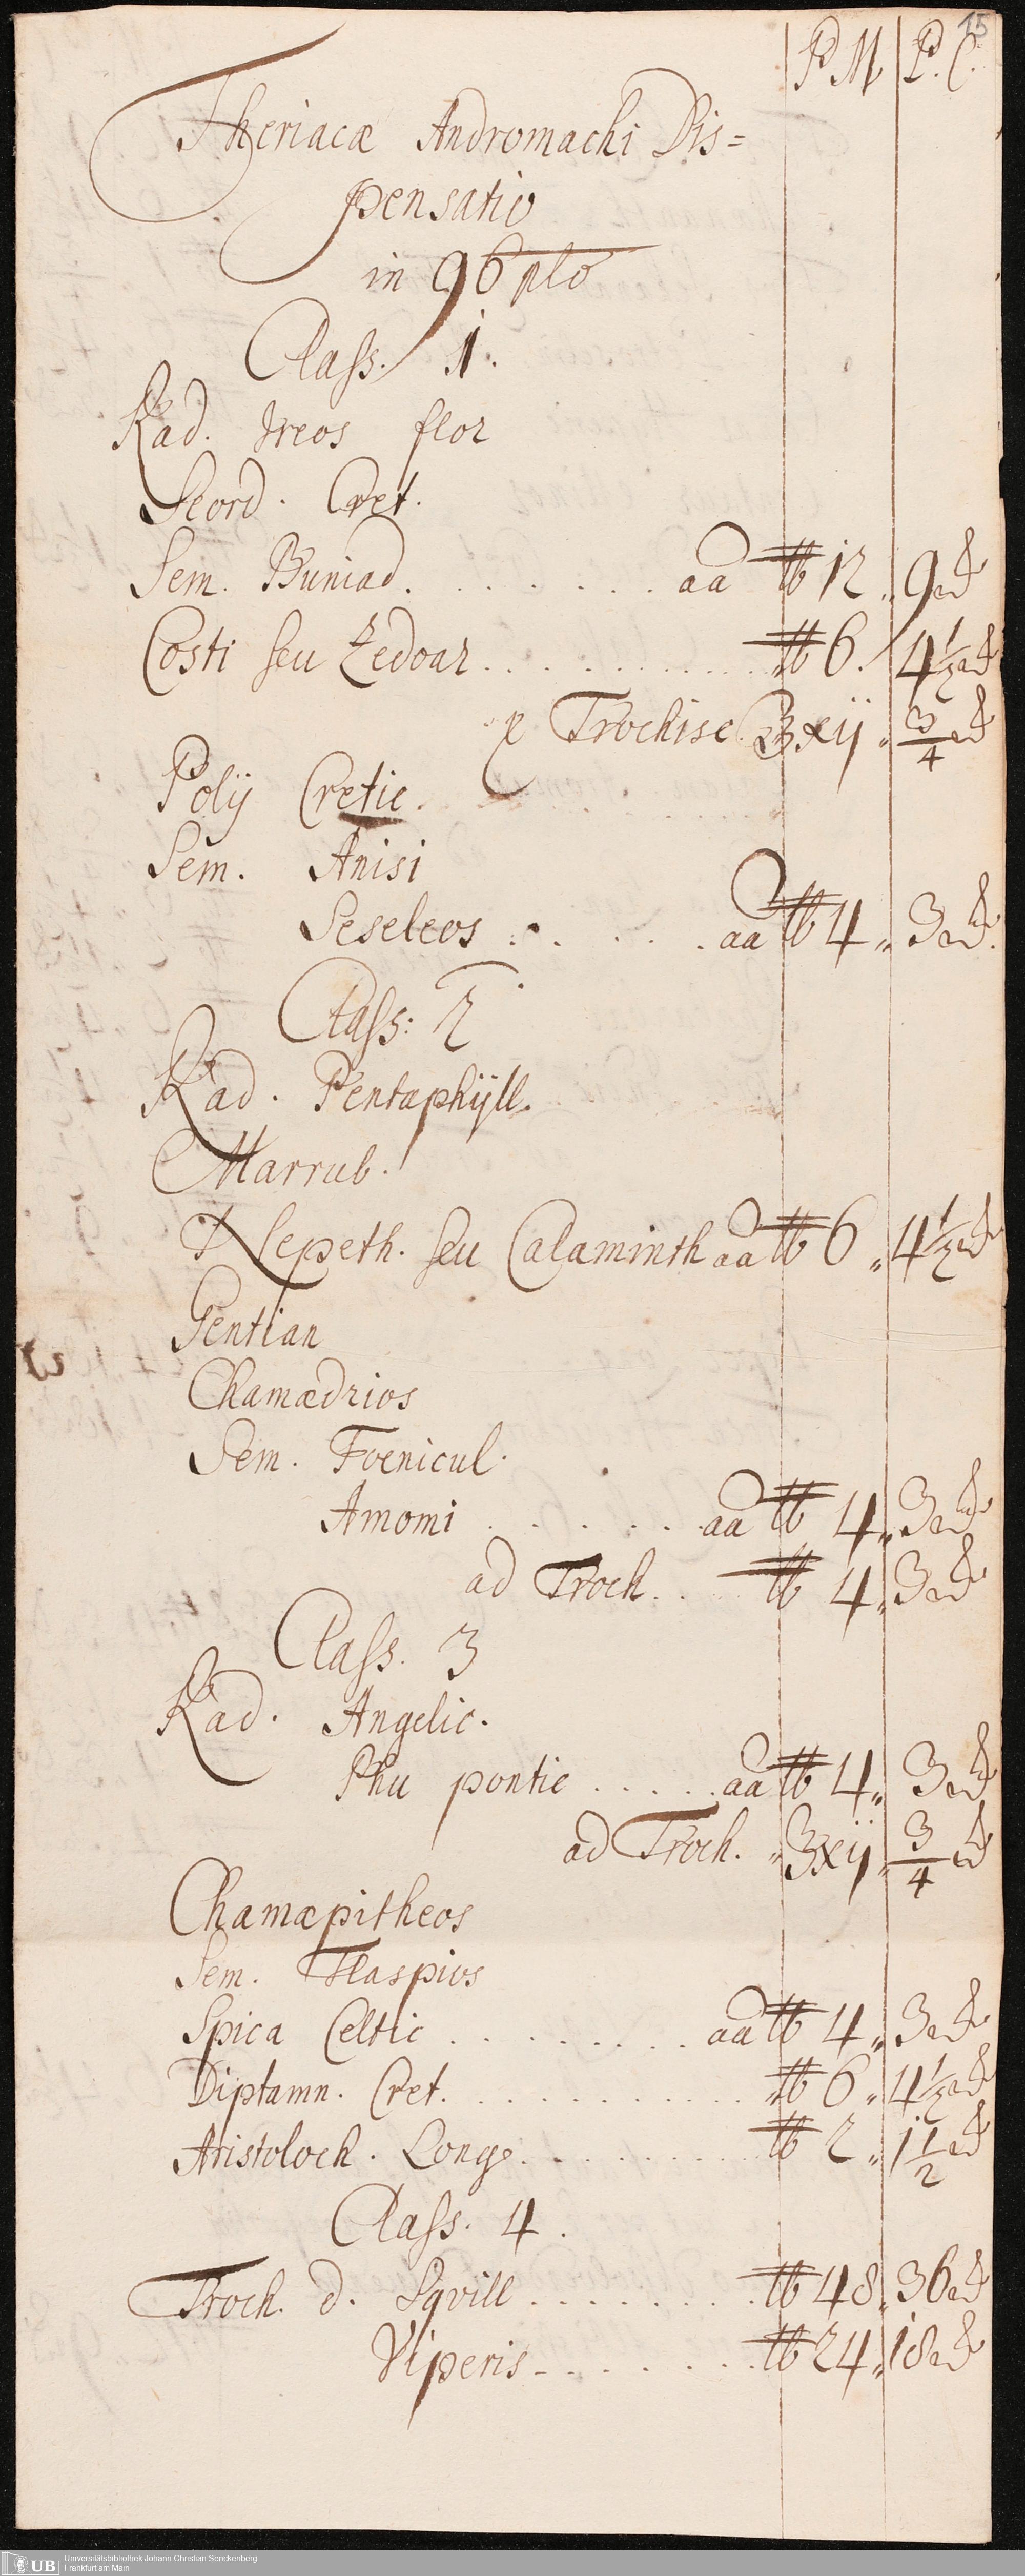 15
P M P. C.
Theriacæ Andromachi Dis=
pensatio
in 96 plo
Class. 1.
Rad. Ireos flor
Scord. Cret.
Sem. Buniad. . . . . . . . aa ℔ 12 „ 9 ℔
Costi seu Zedoar . . . . . . . . . . „ ℔ 6. 4 1/2 ℔
p Trochisc ℥xij „ 3/4 ℔
Polij Cretic.
Sem. Anisi
Seseleos . . . . . . aa ℔ 4 „ 3 ℔.
Class: 2
Rad. Pentaphÿll.
Marrub.
Nepeth. seu Calaminth aa ℔ 6 „ 4 1/2 ℔
Gentian
Chamædrios
Sem. Foenicul.
Amomi . . . . . . aa ℔ 4 „ 3 ℔
ad Troch. . . ℔ 4 „ 3 ℔
Class. 3
Rad. Angelic.
Phu pontic . . . . . aa ℔ 4 „ 3 ℔
ad Troch. „ ℥xij „ 3/4 ℔
Chamæpitheos
Sem. Tlaspios
Spica Celtic . . . . . . . aa ℔ 4 „ 3 ℔
Diptamn. Cret. . . . . . . . . . „ ℔ 6 „ 4 1/2 ℔
Aristoloch. Long. . . . . . . . . ℔ 2 „ 1 1/2 ℔
Class. 4.
Troch. d. Sqvill . . . . . . . . ℔ 48 „ 36 ℔
Viperis - . . . . . . . ℔ 24 „ 18 ℔
UB Universitätsbibliothek Johann Christian Senckenberg
Frankfurt am Main